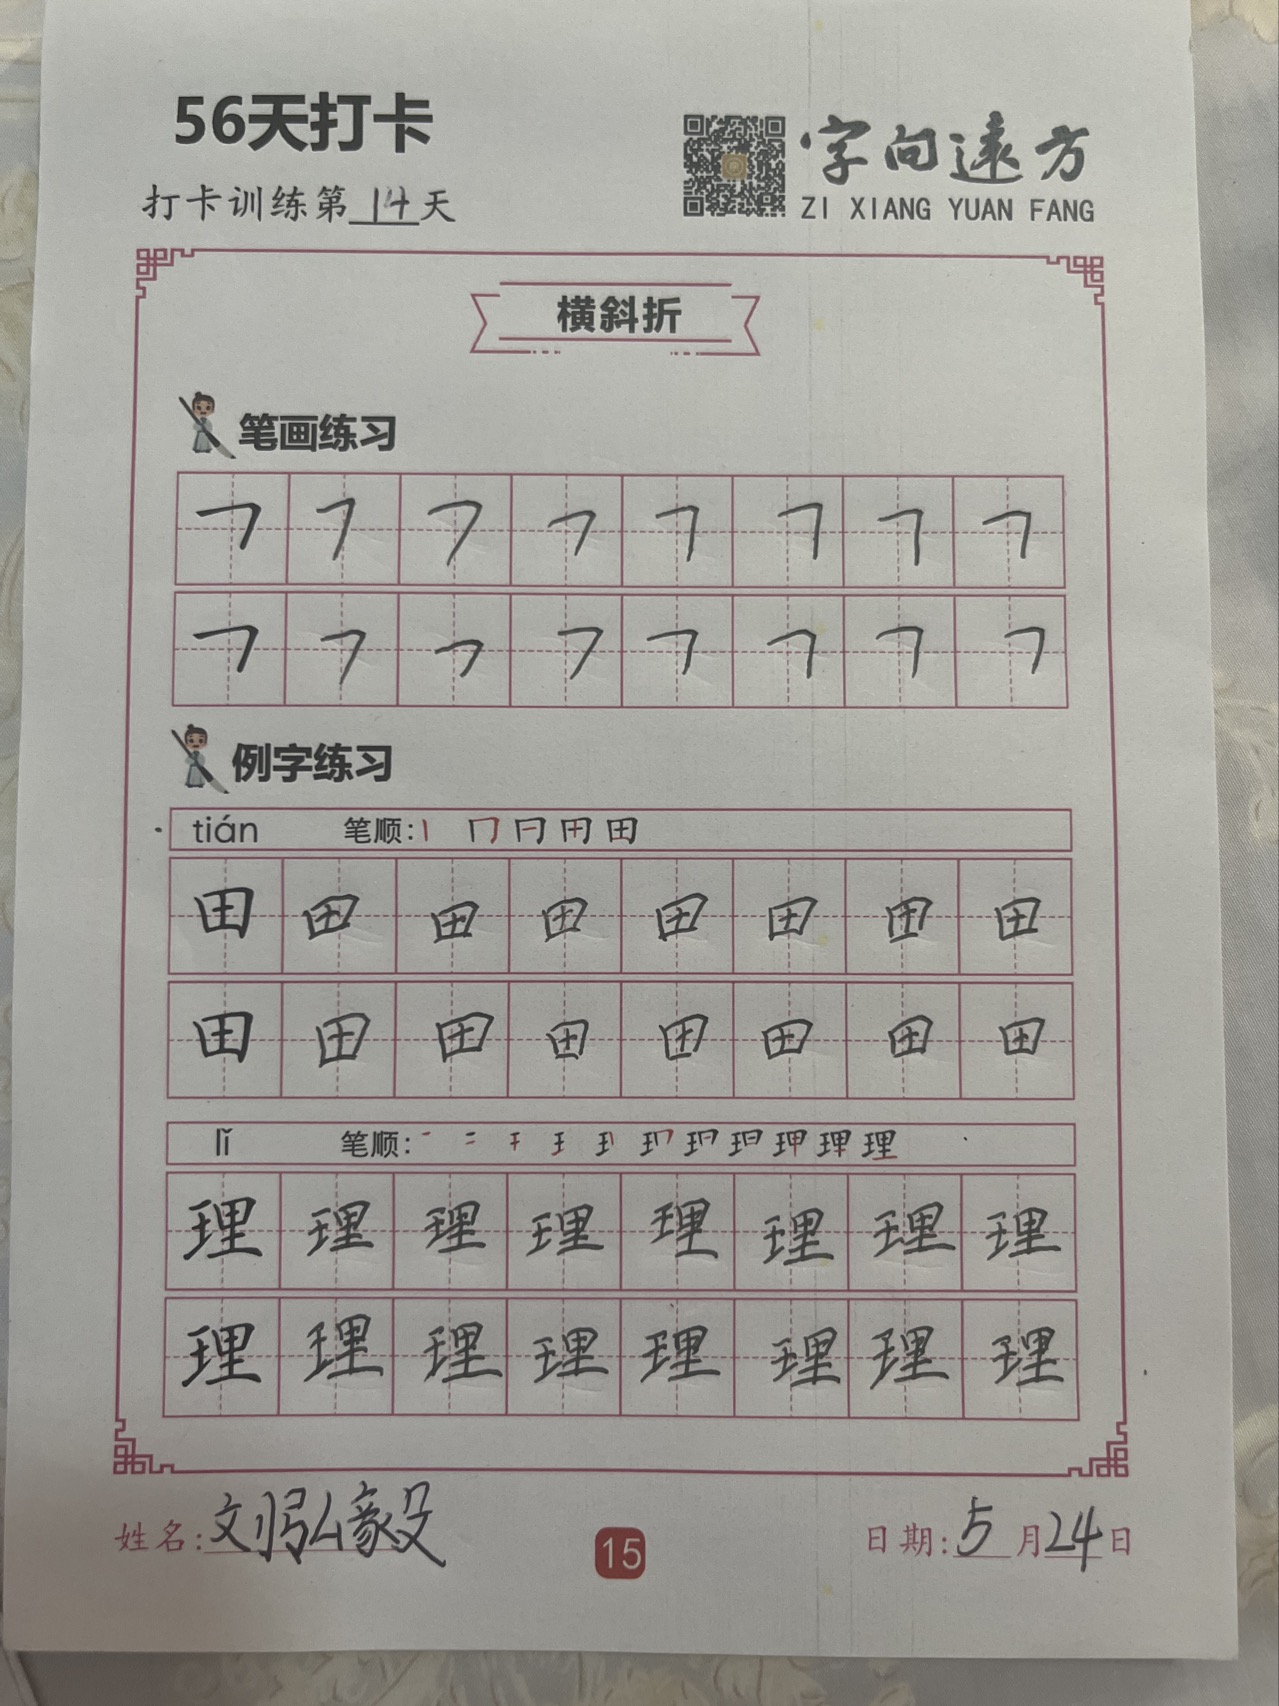 56天打卡
打卡训练第14天
字向远方
ZI XIANG YUAN FANG
横斜折
笔画练习
例字练习
tián 笔顺: 丨 冂 日 田 田
田 田 田 田 田 田 田 田
田 田 田 田 田 田 田 田
lǐ 笔顺: 理
理 理 理 理 理 理 理 理
理 理 理 理 理 理 理 理
姓名: 刘弘毅
15
日期: 5月24日